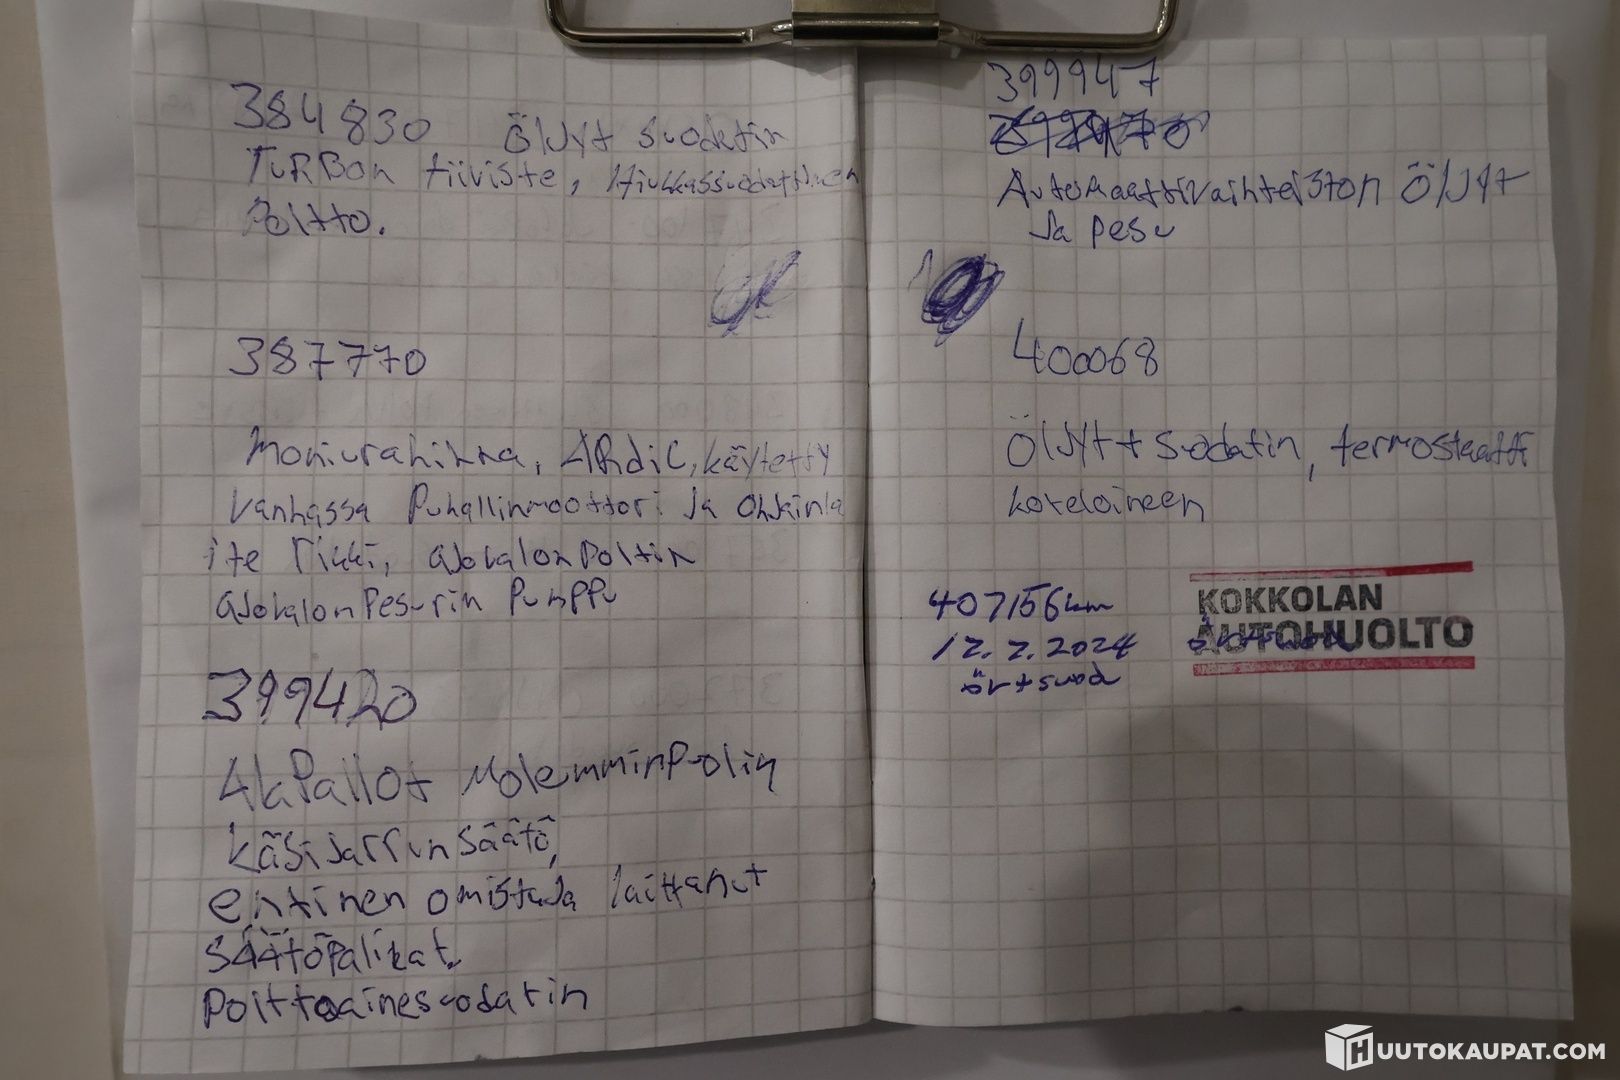 384830 Öljyt suodatin
Turbon tiiviste, Hiukkassuodattimen
Poltto.
387770
Moniurahihna, ARdic, käytetty
Vanhassa Puhallinmoottori ja ohjainla
ite rikki, ajovalon Poltin
ajovalonpesurin Pumppu
399420
Alapallot molemminpuolin
käsijarrun säätö,
entinen omistaja laittanut
säätöpalikat.
polttoainesuodatin
399947
Automaattivaihteiston Öljyt
Ja pesu
400068
Öljyt + suodatin, termostaatti
koteloineen
407156 km
12.7.2024
öv + suod
KOKKOLAN
AUTOHUOLTO
HUUTOKAUPAT.COM